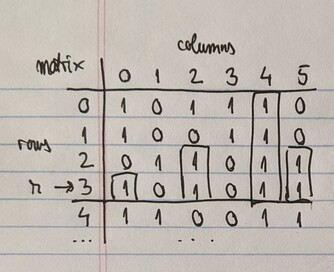 columns
matrix 0 1 2 3 4 5
0 1 0 1 1 1 0
1 1 0 0 1 1 0
rows
2 0 1 1 0 1 1
r → 3 1 0 1 0 1 1
4 1 1 0 0 1 1
... ...